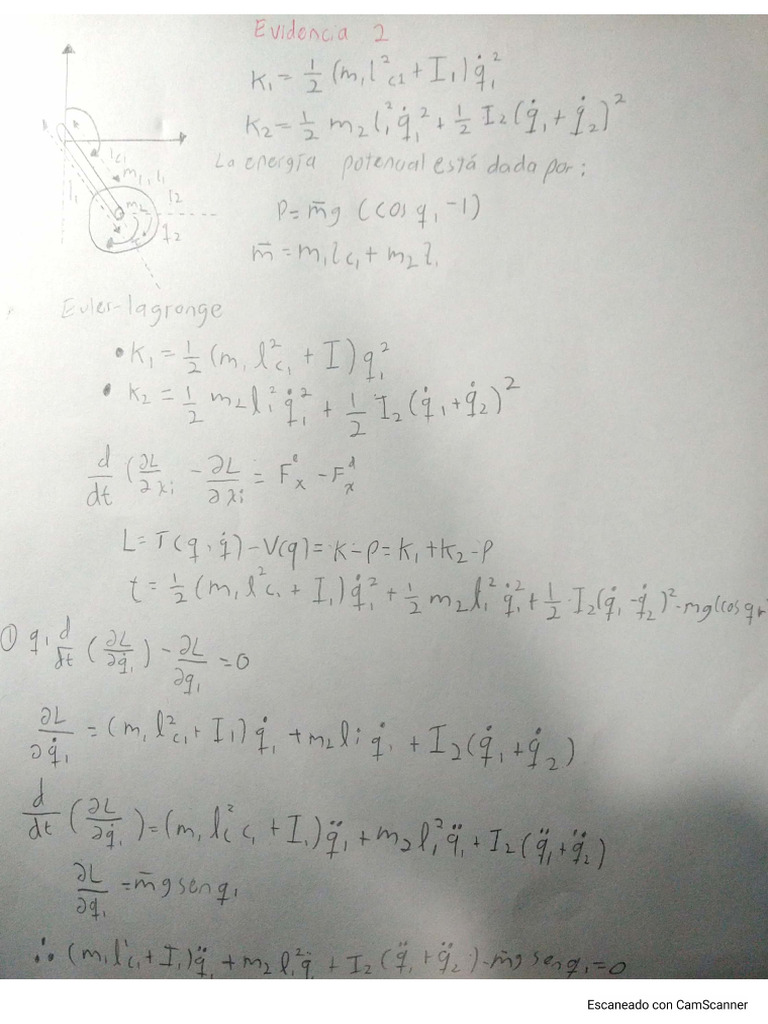 Evidencia 2
K₁ = 1/2 (m₁ l²c1 + I₁) q̇₁²
K₂ = 1/2 m₂ l₁² q̇₁² + 1/2 I₂ (q̇₁ + q̇₂)²
La energía potencual está dada por:
P = m̄g (cos q₁ -1)
m̄ = m₁ lc₁ + m₂ l₁
lc₁
m₁, l₁
l₁
I₂
m₂
q₂
Euler-lagronge
• K₁ = 1/2 (m₁ l²c₁ + I) q₁²
• K₂ = 1/2 m₂ l₁² q̇₁² + 1/2 I₂ (q̇₁ + q̇₂)²
d/dt (∂L/∂ẋi - ∂L/∂xi = Fₓᵉ - Fₓᵈ
L = T(q, q̇) - V(q) = K - P = K₁ + K₂ - P
t = 1/2 (m₁ l²c₁ + I₁) q̇₁² + 1/2 m₂ l₁² q̇₁² + 1/2 · I₂ (q̇₁ - q̇₂)² - mg(cos q
① q₁ d/dt (∂L/∂q̇₁) - ∂L/∂q₁ = 0
∂L/∂q̇₁ = (m₁ l²c₁ + I₁) q̇₁ + m₂ li q̇₁ + I₂ (q̇₁ + q̇₂)
d/dt (∂L/∂q̇₁) = (m₁ lc² c₁ + I₁) q̈₁ + m₂ l₁² q̈₁ + I₂ (q̈₁ + q̈₂)
∂L/∂q₁ = m̄g sen q₁
∴ (m₁ l²c₁ + I₁) q̈₁ + m₂ l₁² q̈₁ + I₂ (q̈₁ + q̈₂) - m̄g sen q₁ = 0
Escaneado con CamScanner